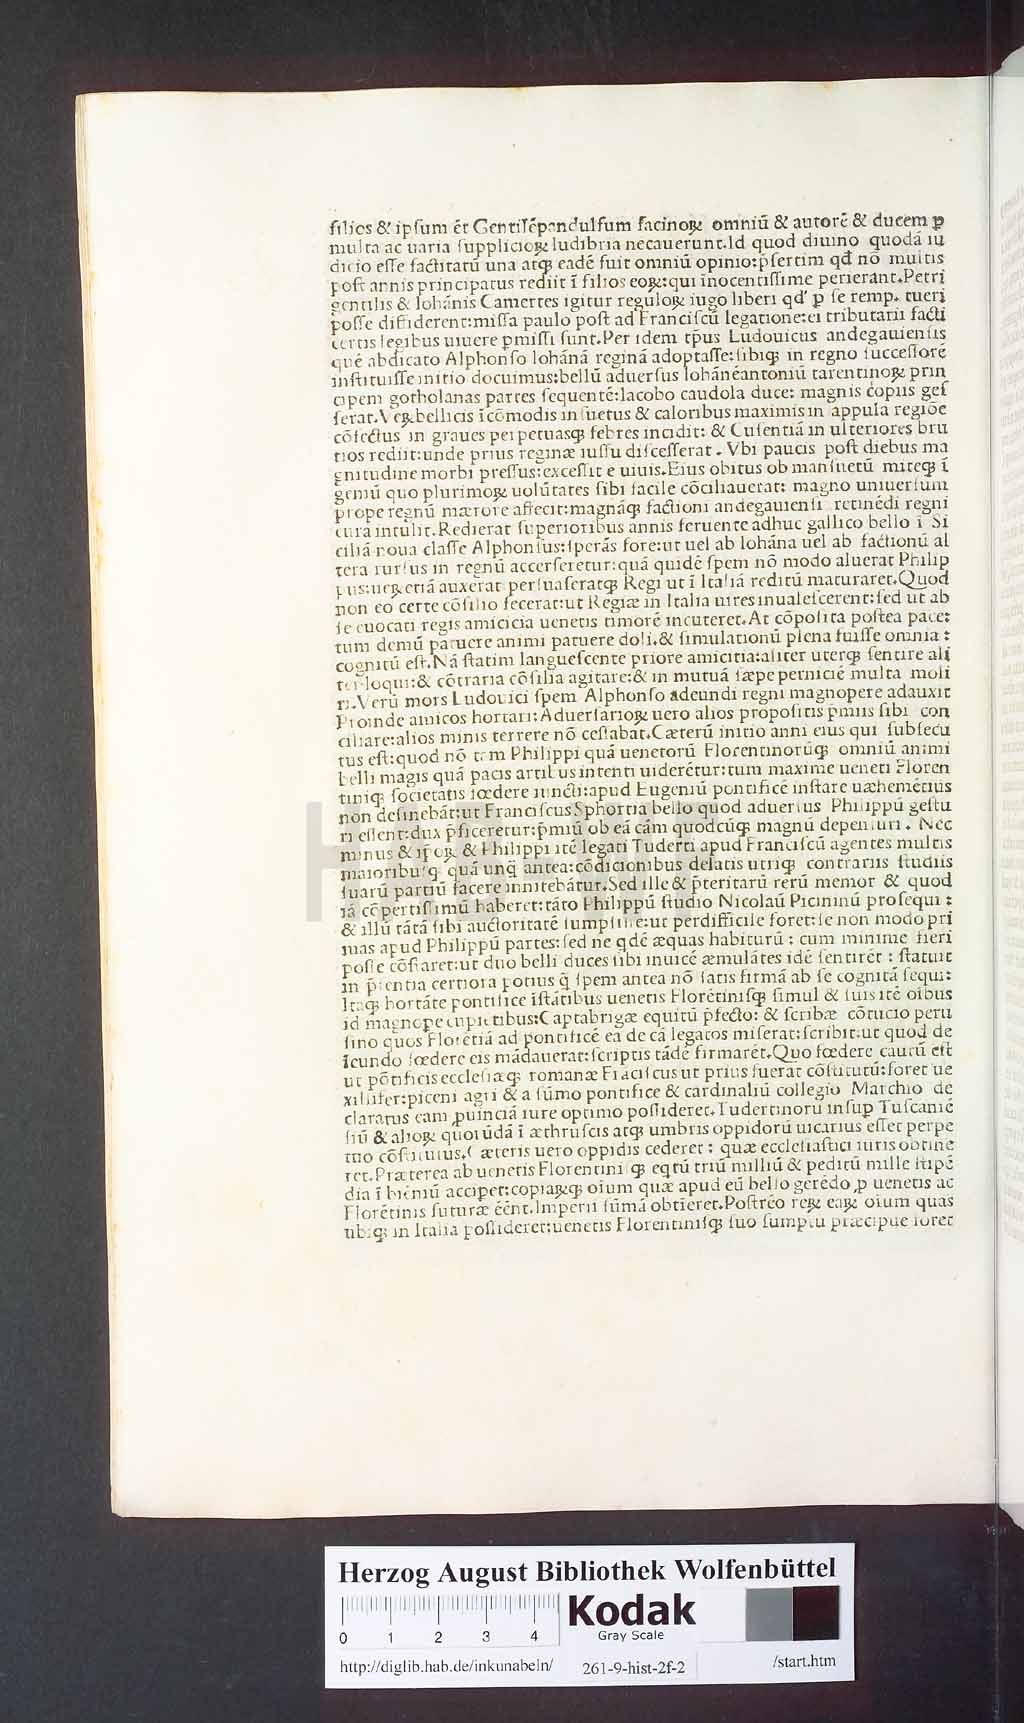 filios & ipsum ét Gentilépandulfum facinoꝝ omniū & autorē & ducem ꝑ
multa ac uaria supplicioꝝ ludibria necauerunt.Id quod diuino quodā iu
dicio esse factitatū una atqꝫ eadē fuit omniū opinio:p̄sertim qd̄ nō multis
post annis principatus rediit ī filios eoꝝ:qui īnocentissime perierant.Petri
gentilis & Iohānis Camertes igitur reguloꝝ iugo liberi qd' ꝑ se remp. tueri
posse diffiderent:missa paulo post ad Franciscū legatione:ei tributarii facti
certis legibus uiuere ꝑmissi sunt.Per idem tp̄us Ludouicus andegauiensis
quē abdicato Alphonso Iohānā reginā adoptasse:sibiqꝫ in regno successorē
instituisse initio docuimus:bellū aduersus Iohānēantoniū tarentinoꝝ prin
cipem gotholanas partes sequentē:Iacobo caudola duce: magnis copiis ges
serat.Veꝝ bellicis īcōmodis insuetus & caloribus maximis in appula regiōe
cōfectus in graues perpetuasqꝫ febres incidit: & Cusentiā in ulteriores bru
tios rediit:unde prius reginæ iussu discesserat. Vbi paucis post diebus ma
gnitudine morbi pressus:excessit e uiuis.Eius obitus ob mansuetū miteqꝫ ī
geniū quo plurimoꝝ uolūtates sibi facile cōciliauerat: magno uniuersum
prope regnū mærore affecit:magnāqꝫ factioni andegauiensi retinēdi regni
cura intulit.Redierat superioribus annis feruente adhuc gallico bello ī Si
ciliā noua classe Alphonsus:sperās fore:ut uel ab Iohāna uel ab factionū al
tera rursus in regnū accerseretur:quā quidē spem nō modo aluerat Philip
pus:ueꝝ etiā auxerat persuaseratqꝫ Regi ut ī Italiā reditū maturaret.Quod
non eo certe cōsilio fecerat:ut Regiæ in Italia uires inualescerent:sed ut ab
se euocati regis amicicia uenetis timorē incuteret.At cōposita postea pace:
tum demū patuere animi patuere doli.& simulationū plena fuisse omnia:
cognitū est.Nā statim languescente priore amicitia:aliter uterqꝫ sentire ali
ter loqui:& cōtraria cōsilia agitare:& in mutuā sæpe perniciē multa moli
ri.Verū mors Ludouici spem Alphonso adeundi regni magnopere adauxit
Proinde amicos hortari:Aduersarioꝝ uero alios propositis p̄miis sibi con
ciliare:alios minis terrere nō cessabat.Cæterū initio anni eius qui subsecu
tus est:quod nō tam Philippi quā uenetorū Florentinorūqꝫ omniū animi
belli magis quā pacis artibus intenti uiderētur:tum maxime ueneti Floren
tiniqꝫ societatis fœdere iuncti:apud Eugeniū pontificē instare uæhemētius
non desinebāt:ut Franciscus Sphortia bello quod aduersus Philippū gestu
ri essent:dux p̄ficeretur:p̄miū ob eā cām quodcūqꝫ magnū depensuri. Nec
minus & ip̄oꝝ & Philippi itē legati Tuderti apud Franciscū agentes multis
maioribusqꝫ quā unq̄ antea:cōdicionibus delatis utriqꝫ contrariis studiis
suarū partiū facere innitebātur.Sed ille & p̄teritarū rerū memor & quod
iā cōpertissimū haberet:tāto Philippū studio Nicolaū Picininū prosequi:
& illū tātā sibi auctoritatē sumpsisse:ut perdifficile foret:se non modo pri
mas apud Philippū partes:sed ne qdē æquas habiturū: cum minime fieri
posse cōfiaret:ut duo belli duces sibi inuicē æmulātes idē sentirēt: statuit
in p̄sentia certiora potius q̄ spem antea nō satis firmā ab se cognitā sequi:
Itaqꝫ hortāte pontifice īstātibus uenetis Florētinisqꝫ simul & suis itē oībus
id magnope cupiētibus:Captabrigæ equitū p̄fecto: & scribæ cōtucio peru
sino quos Florētiā ad pontificē ea de cā legatos miserat:scribit:ut quod de
īeundo fœdere eis mādauerat:scriptis tādē firmarēt.Quo fœdere cautū est
ut pōtificis ecclesiæqꝫ romanæ Frāciscus ut prius fuerat cōstitutū:foret ue
xillifer:piceni agri & a sūmo pontifice & cardinaliū collegio Marchio de
claratus eam ꝓuinciā iure optimo possideret.Tudertinorū insuꝑ Tuscaniē
siū & alioꝝ quorūdā ī æthruscis atqꝫ umbris oppidorū uicarius esset perpe
tuo cōstitutus.Cæteris uero oppidis cederet: quæ ecclesiastici iuris obtine
ret.Præterea ab uenetis Florentinisqꝫ eqtū triū milliū & peditū mille stipē
dia ī biēniū acciperet:copiaꝝqꝫ oīum quæ apud eū bello gerēdo ꝓ uenetis ac
Florētinis futuræ eēnt.Imperii sūmā obtieret.Postrēo reꝝ eaꝝ oīum quas
ubiqꝫ in Italia possideret:uenetis Florentinisqꝫ suo sumptu præcipue foret
HAB-WF
Herzog August Bibliothek Wolfenbüttel
0 1 2 3 4
Kodak
Gray Scale
http://diglib.hab.de/inkunabeln/ 261-9-hist-2f-2 /start.htm